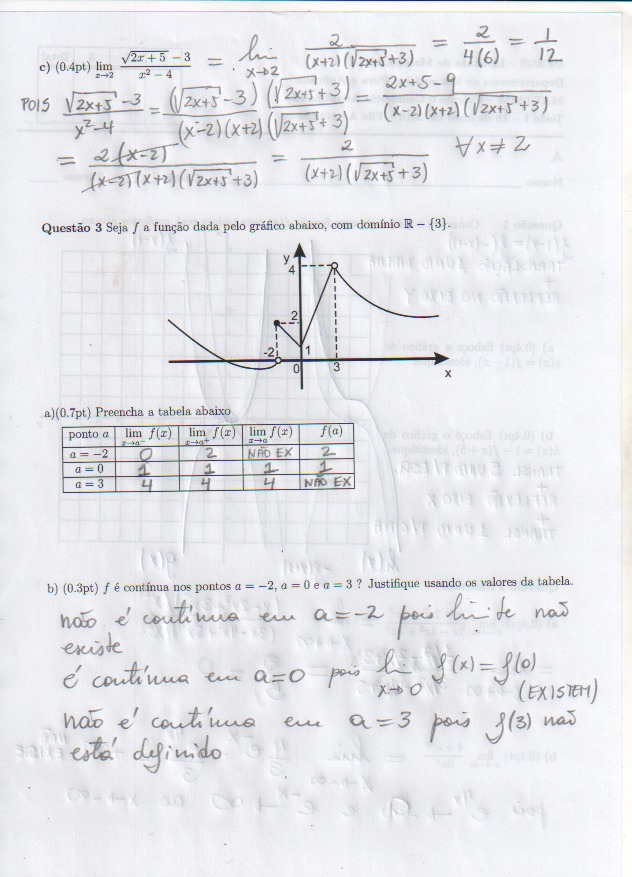 c) (0.4pt) lim x→2 (√(2x+5) − 3)/(x² − 4) = lim x→2 2/((x+2)(√(2x+5)+3)) = 2/(4(6)) = 1/12
POIS (√(2x+5) −3)/(x²−4) = ((√(2x+5) −3)(√(2x+5)+3))/((x−2)(x+2)(√(2x+5)+3)) = (2x+5−9)/((x−2)(x+2)(√(2x+5)+3))
= (2(x−2))/((x−2)(x+2)(√(2x+5)+3)) = 2/((x+2)(√(2x+5)+3)) ∀ x ≠ 2
Questão 3 Seja f a função dada pelo gráfico abaixo, com domínio ℝ − {3}.
y
4
2
-2
1
0
3
x
a)(0.7pt) Preencha a tabela abaixo
ponto a lim x→a⁻ f(x) lim x→a⁺ f(x) lim x→a f(x) f(a)
a = −2 0 2 NÃO EX 2
a = 0 1 1 1 1
a = 3 4 4 4 NÃO EX
b) (0.3pt) f é contínua nos pontos a = −2, a = 0 e a = 3 ? Justifique usando os valores da tabela.
não é contínua em a=-2 pois limite não
existe
é contínua em a=0 pois lim x→0 f(x) = f(0)
(EXISTEM)
não é contínua em a=3 pois f(3) não
está definido